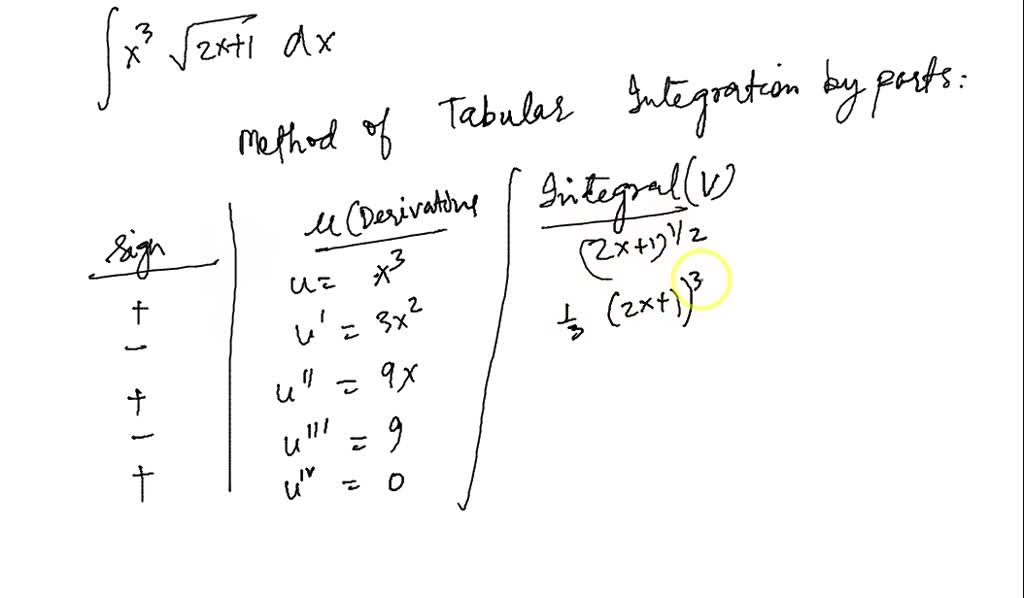 ∫ x³ √2x+1 dx
Method of Tabular Integration by parts:
Sign | u (Derivative | Integral (V)
+ | u = x³ | (2x+1)^1/2
− | u' = 3x² | 1/3 (2x+1)^3
+ | u'' = 9x
− | u''' = 9
+ | u^iv = 0